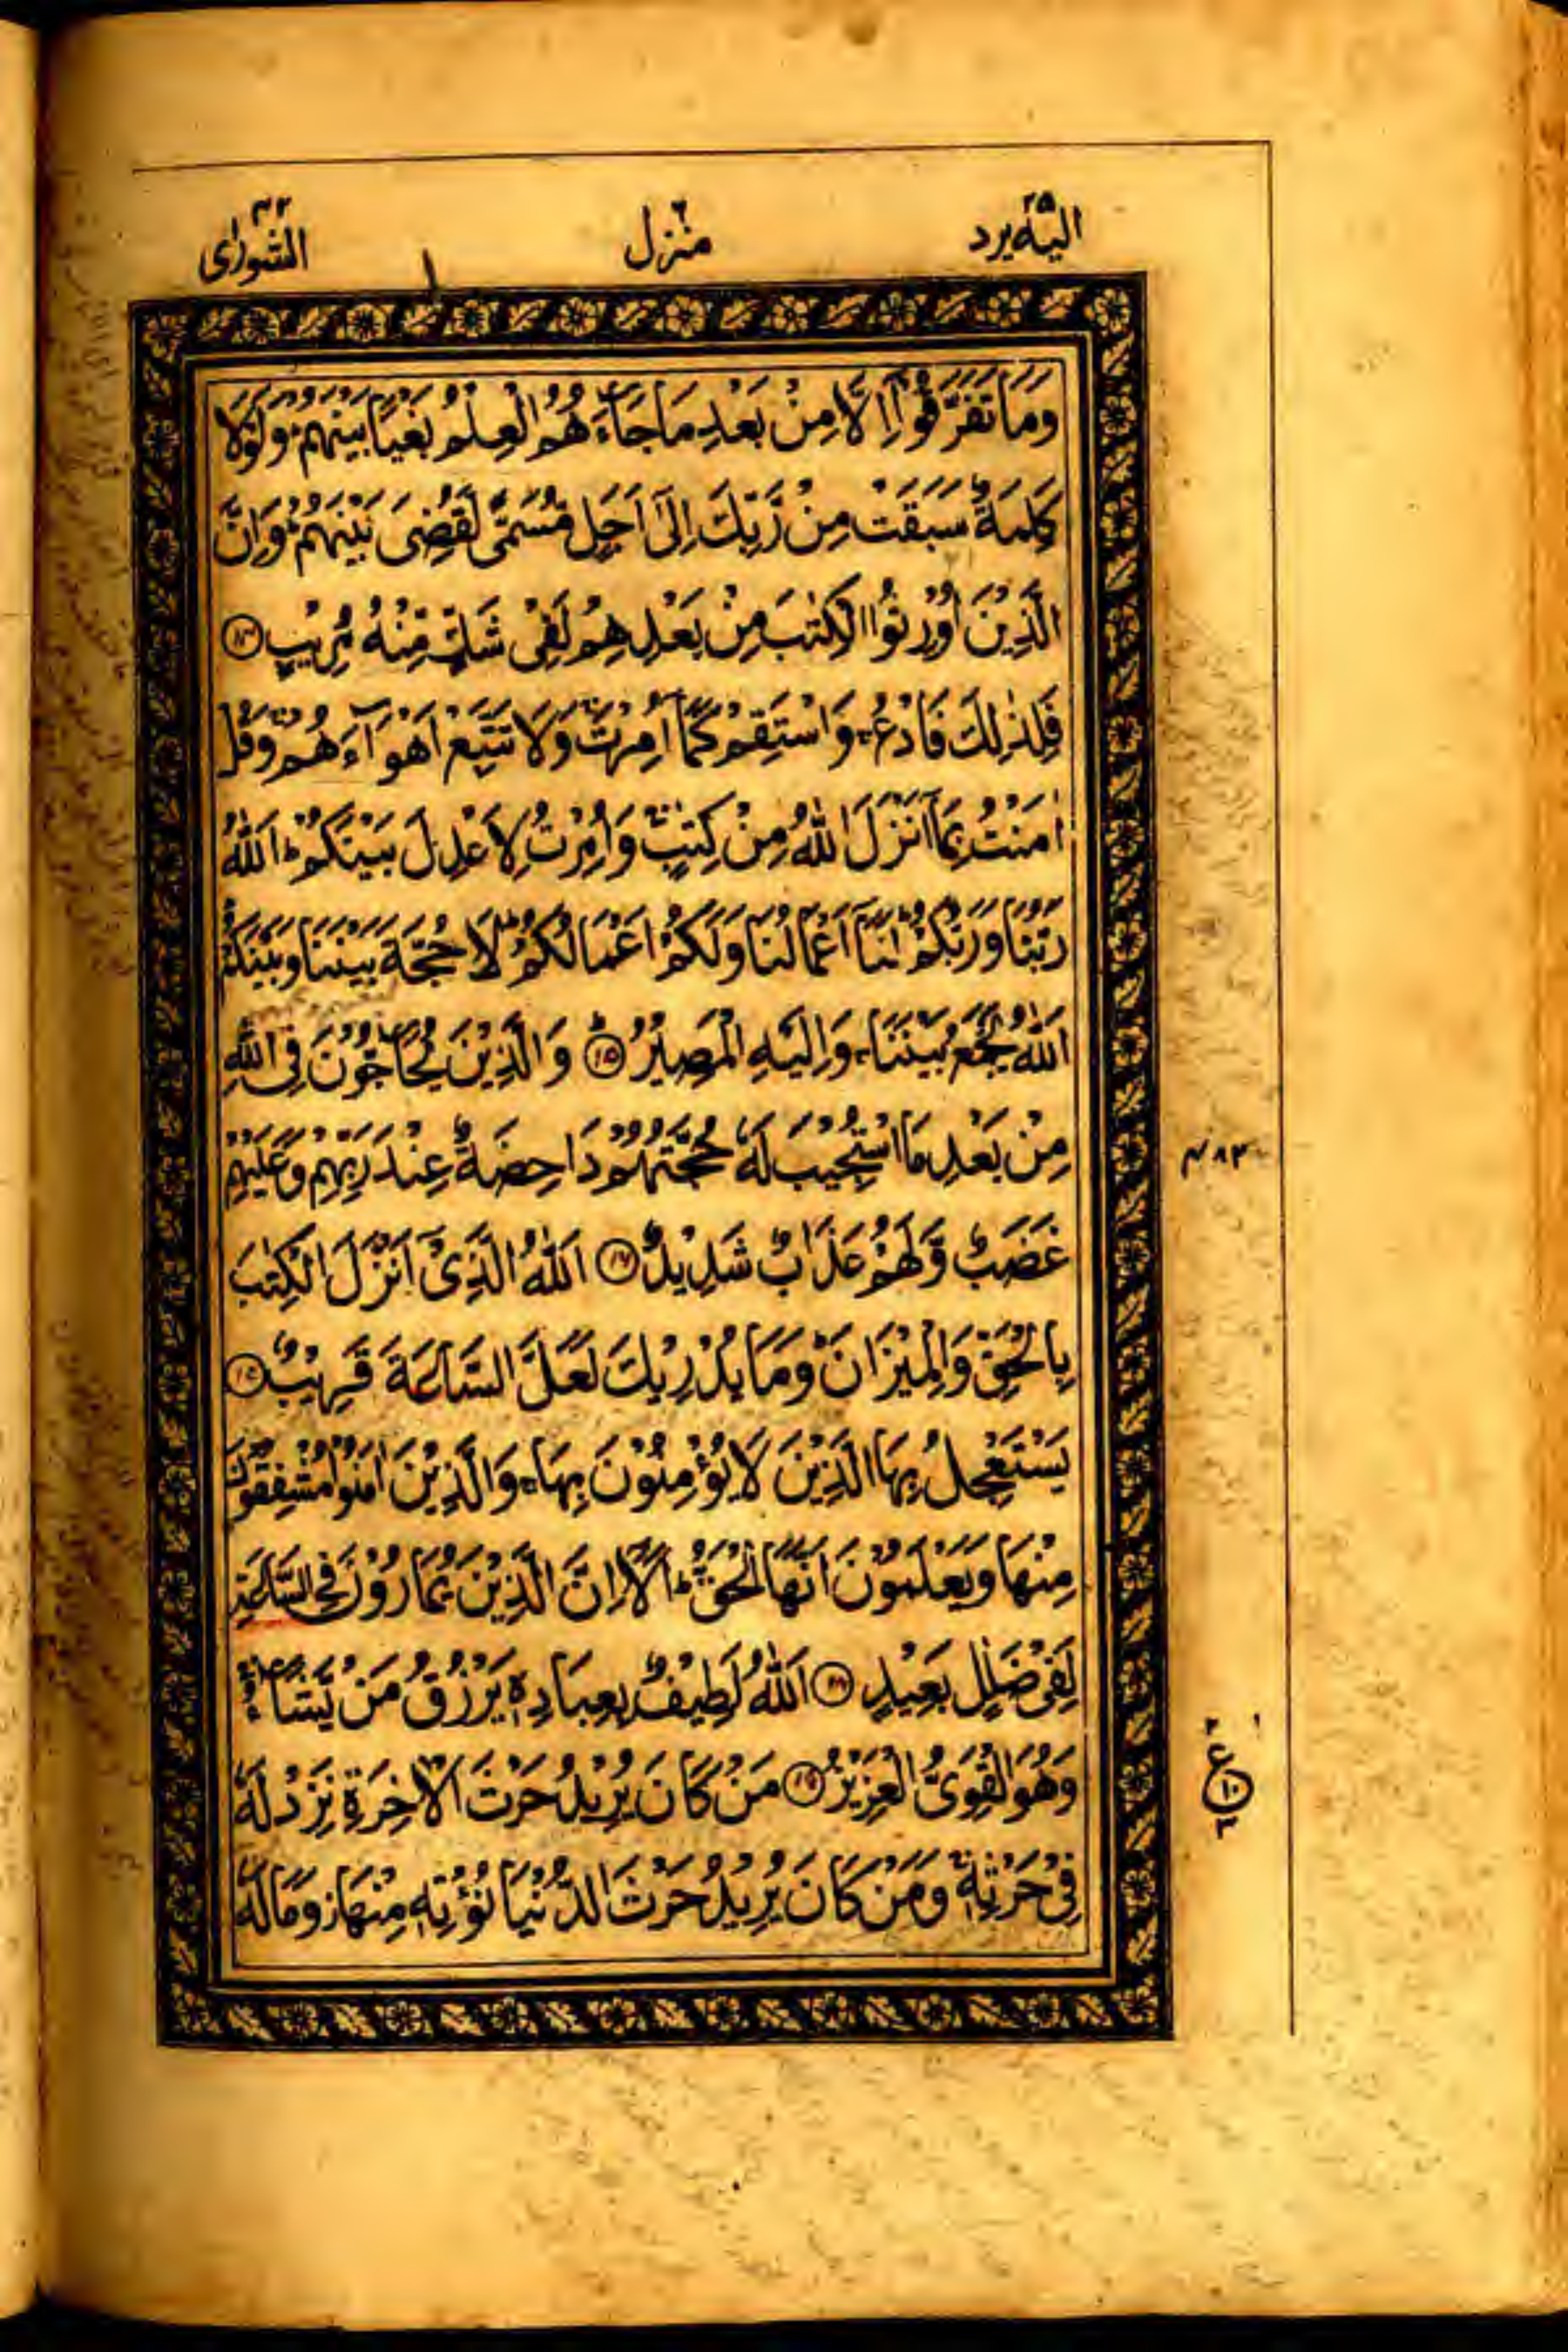 اليه يرد ٢٥
منزل ٦
الشورٰى ٤٢
وَمَا تَفَرَّقُوْٓا اِلَّا مِنْۢ بَعْدِ مَا جَآءَهُمُ الْعِلْمُ بَغْيًۢا بَيْنَهُمْ ؕ وَلَوْلَا
كَلِمَةٌ سَبَقَتْ مِنْ رَّبِّكَ اِلٰٓى اَجَلٍ مُّسَمًّى لَّقُضِىَ بَيْنَهُمْ ؕ وَاِنَّ
الَّذِيْنَ اُوْرِثُوا الْكِتٰبَ مِنْۢ بَعْدِهِمْ لَفِىْ شَكٍّ مِّنْهُ مُرِيْبٍ ١٤
فَلِذٰلِكَ فَادْعُ ۚ وَاسْتَقِمْ كَمَآ اُمِرْتَ ۚ وَلَا تَتَّبِعْ اَهْوَآءَهُمْ ۚ وَقُلْ
اٰمَنْتُ بِمَآ اَنْزَلَ اللّٰهُ مِنْ كِتٰبٍ ۚ وَاُمِرْتُ لِاَعْدِلَ بَيْنَكُمْ ؕ اَللّٰهُ
رَبُّنَا وَرَبُّكُمْ ؕ لَنَآ اَعْمَالُنَا وَلَكُمْ اَعْمَالُكُمْ ؕ لَا حُجَّةَ بَيْنَنَا وَبَيْنَكُمْ ؕ
اَللّٰهُ يَجْمَعُ بَيْنَنَا ۚ وَاِلَيْهِ الْمَصِيْرُ ؕ ١٥ وَالَّذِيْنَ يُحَآجُّوْنَ فِى اللّٰهِ
مِنْۢ بَعْدِ مَا اسْتُجِيْبَ لَهٗ حُجَّتُهُمْ دَاحِضَةٌ عِنْدَ رَبِّهِمْ وَعَلَيْهِمْ
غَضَبٌ وَّلَهُمْ عَذَابٌ شَدِيْدٌ ١٦ اَللّٰهُ الَّذِىْٓ اَنْزَلَ الْكِتٰبَ
بِالْحَقِّ وَالْمِيْزَانَ ؕ وَمَا يُدْرِيْكَ لَعَلَّ السَّاعَةَ قَرِيْبٌ ١٧
يَسْتَعْجِلُ بِهَا الَّذِيْنَ لَا يُؤْمِنُوْنَ بِهَا ۚ وَالَّذِيْنَ اٰمَنُوْا مُشْفِقُوْنَ
مِنْهَا وَيَعْلَمُوْنَ اَنَّهَا الْحَقُّ ؕ اَلَآ اِنَّ الَّذِيْنَ يُمَارُوْنَ فِى السَّاعَةِ
لَفِىْ ضَلٰلٍۢ بَعِيْدٍ ١٨ اَللّٰهُ لَطِيْفٌۢ بِعِبَادِهٖ يَرْزُقُ مَنْ يَّشَآءُ ۚ
وَهُوَ الْقَوِىُّ الْعَزِيْزُ ١٩ مَنْ كَانَ يُرِيْدُ حَرْثَ الْاٰخِرَةِ نَزِدْ لَهٗ
فِىْ حَرْثِهٖ ۚ وَمَنْ كَانَ يُرِيْدُ حَرْثَ الدُّنْيَا نُؤْتِهٖ مِنْهَا ۙ وَمَا لَهٗ
ع
١٠
٣